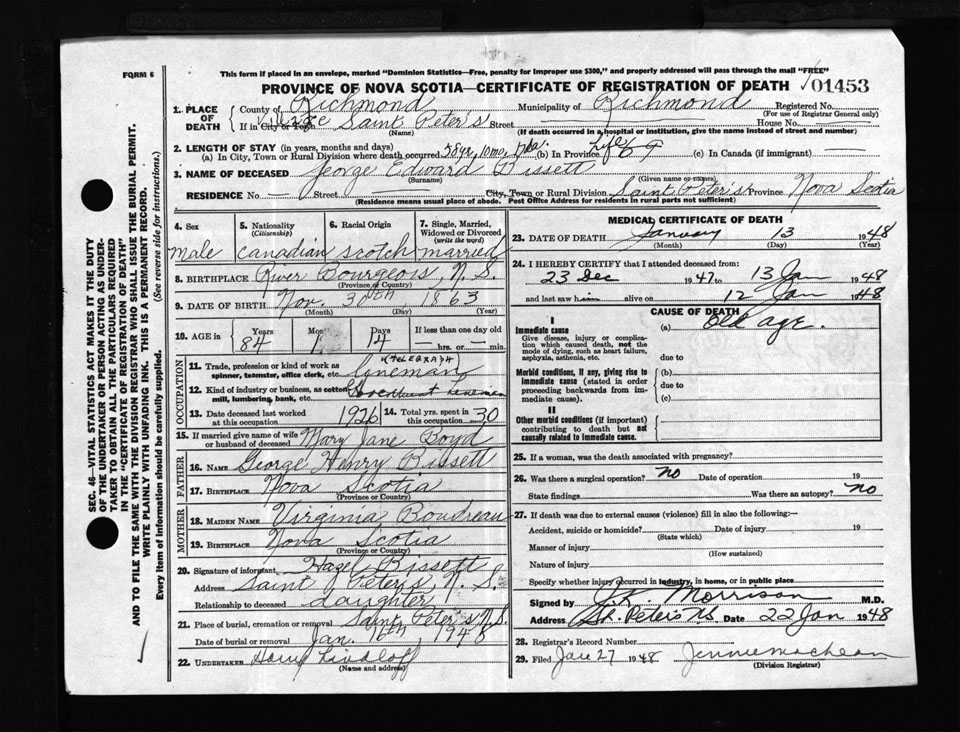 FORM 6
This form if placed in an envelope, marked "Dominion Statistics—Free, penalty for improper use $300," and properly addressed will pass through the mail "FREE"
PROVINCE OF NOVA SCOTIA—CERTIFICATE OF REGISTRATION OF DEATH 01453
1. PLACE OF DEATH
County of Richmond Municipality of Richmond Registered No.
(For use of Registrar General only)
If in City or Town Village Saint Peter's Street House No.
(Name) (If death occurred in a hospital or institution, give the name instead of street and number)
2. LENGTH OF STAY (in years, months and days)
(a) In City, Town or Rural Division where death occurred 10 mo. (b) In Province Life (c) In Canada (if immigrant) —
3. NAME OF DECEASED George Edward Bissett
(Surname) (Given or names)
RESIDENCE No. — Street City, Town or Rural Division Saint Peter's Province Nova Scotia
(Residence means usual place of abode. Post Office Address for residents in rural parts not sufficient)
4. Sex male
5. Nationality (Citizenship) canadian
6. Racial Origin scotch
7. Single, Married, Widowed or Divorced (write the word) married
8. BIRTHPLACE River Bourgeois, N.S.
(Province or Country)
9. DATE OF BIRTH Nov. 30th 1863
(Month) (Day) (Year)
10. AGE in Years 84 Mos. 1 Days 14 If less than one day old — hrs. or — min.
OCCUPATION
11. Trade, profession or kind of work as spinner, teamster, office clerk, etc. (Telegraph Lineman
12. Kind of industry or business, as cotton mill, lumbering, bank, etc. Lineman
13. Date deceased last worked at this occupation 1926
14. Total yrs. spent in this occupation 30
15. If married give name of wife or husband of deceased Mary Jane Boyd
FATHER
16. NAME George Henry Bissett
17. BIRTHPLACE Nova Scotia
(Province or Country)
MOTHER
18. MAIDEN NAME Virginia Boudreau
19. BIRTHPLACE Nova Scotia
(Province or Country)
20. Signature of informant Hazel Bissett
Address Saint Peter's, N.S.
Relationship to deceased daughter
21. Place of burial, cremation or removal Saint Peter's N.S.
Date of burial or removal Jan. 16th, 1948
22. UNDERTAKER
(Name and address)
MEDICAL CERTIFICATE OF DEATH
23. DATE OF DEATH January 13 1948
(Month) (Day) (Year)
24. I HEREBY CERTIFY that I attended deceased from:
23 Dec 1947 to 13 Jan 1948
and last saw him alive on 12 Jan 1948
CAUSE OF DEATH
I
Immediate cause
Give disease, injury or complication which caused death, not the mode of dying, such as heart failure, asphyxia, asthenia, etc.
(a) Old age.
due to
Morbid conditions, if any, giving rise to immediate cause (stated in order proceeding backwards from immediate cause).
(b)
due to
(c)
II
Other morbid conditions (if important) contributing to death but not causally related to immediate cause.
25. If a woman, was the death associated with pregnancy?
26. Was there a surgical operation? no Date of operation 19
State findings Was there an autopsy? no
27. If death was due to external causes (violence) fill in also the following:—
Accident, suicide or homicide? Date of injury 19
(State which)
Manner of injury
(How sustained)
Nature of injury
Specify whether injury occurred in industry, in home, or in public place
Signed by Morrison M.D.
Address St. Peters N.S. Date 22 Jan 1948
28. Registrar's Record Number
29. Filed Jan 27 1948 Jennie MacLean
(Division Registrar)
SEC. 46—VITAL STATISTICS ACT MAKES IT THE DUTY
OF THE UNDERTAKER OR PERSON ACTING AS UNDER-
TAKER TO OBTAIN ALL THE PARTICULARS REQUIRED
IN THE "CERTIFICATE OF REGISTRATION OF DEATH"
AND TO FILE THE SAME WITH THE DIVISION REGISTRAR WHO SHALL ISSUE THE BURIAL PERMIT.
WRITE PLAINLY WITH UNFADING INK. THIS IS A PERMANENT RECORD.
Every item of information should be carefully supplied. (See reverse side for instructions.)